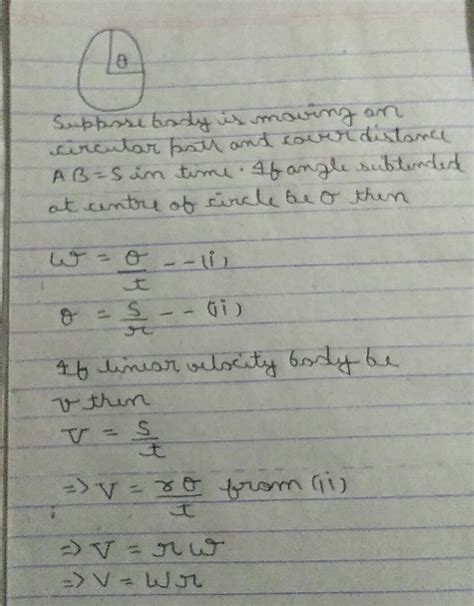 θ
Suppose body is moving on
circular path and cover distance
AB = S in time. If angle subtended
at centre of circle be θ then
W = θ/t -- (i)
θ = S/r -- (ii)
If linear velocity body be
v then
V = S/t
=> V = rθ/t from (ii)
=> V = rw
=> V = Wr